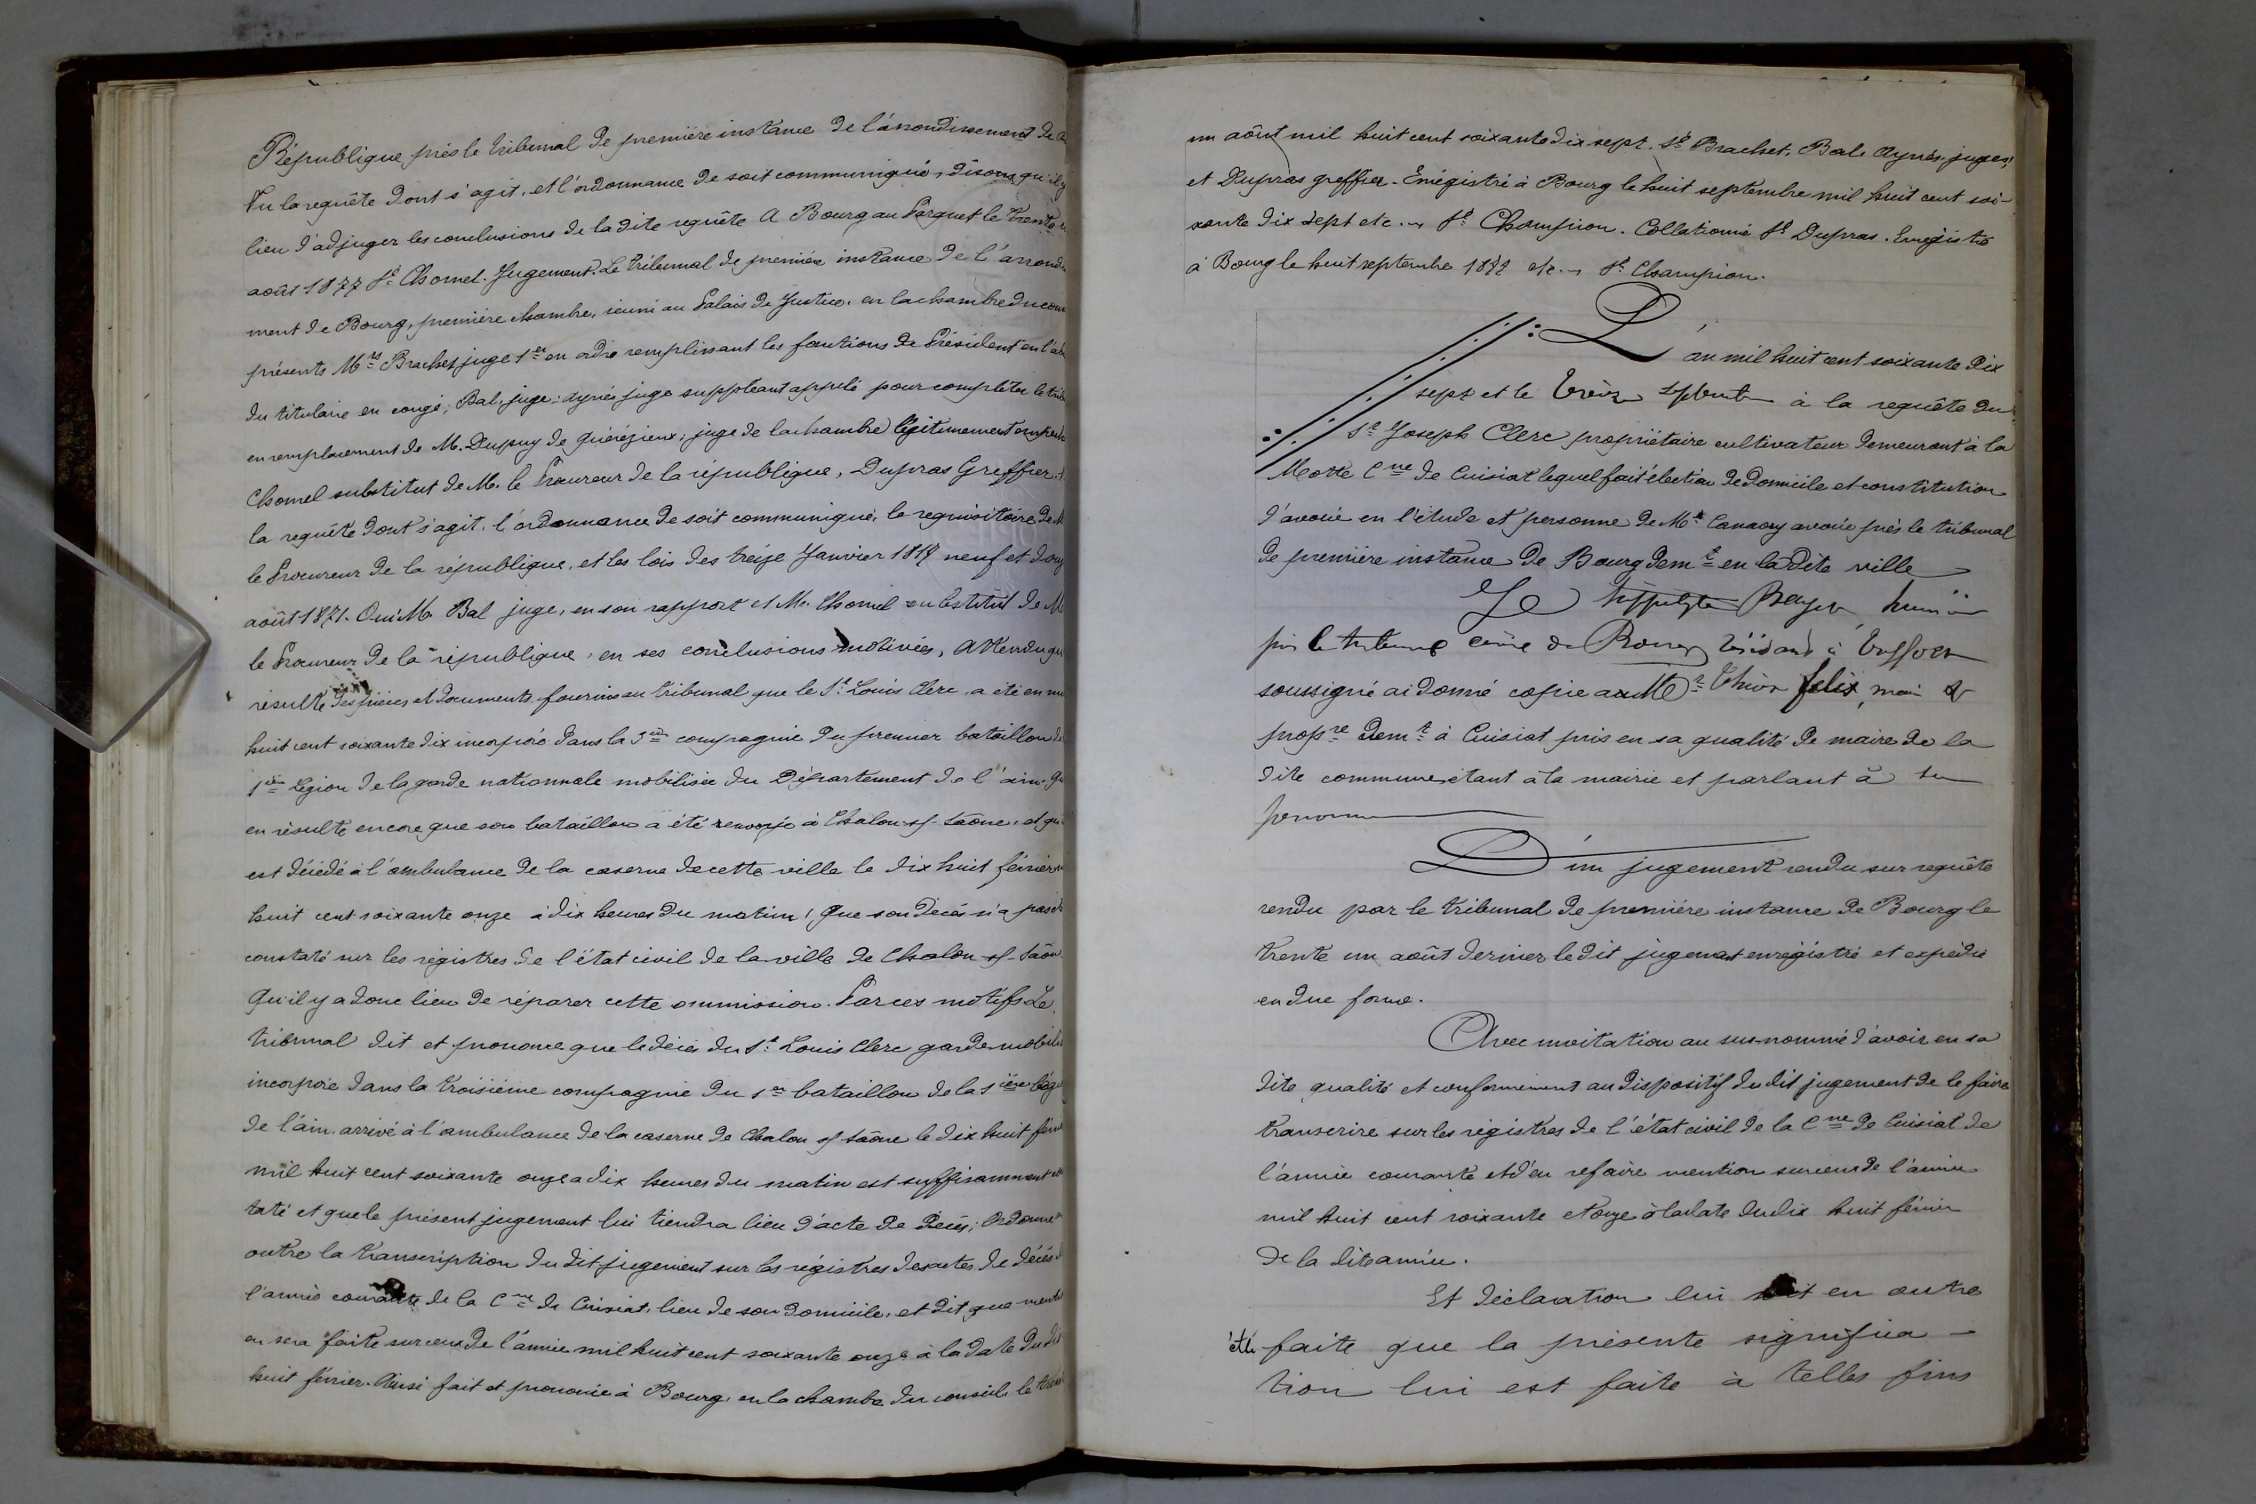 République près le tribunal de première instance de l'arrondissement de
Vu la requête dont s'agit, et l'ordonnance de soit communiqué, disons qu'il y
lieu d'adjuger les conclusions de la dite requête A Bourg au Parquet le trente
août 1877 Sé Chomel. Jugement. Le tribunal de première instance de l'arrond
ment de Bourg, première chambre, réuni au Palais de Justice, en la chambre du con
présents Mrs Brachet juge 1er en ordre remplissant les fonctions de Président en l'ab
du titulaire en congé; Bal, juge; ayriès juge suppléant appelé pour compléter le trib
en remplacement de M. Dupuy de juge de la chambre légitimement empêché
Chomel substitut de M. le Procureur de la république, Dupras Greffier.
la requête dont s'agit, l'ordonnance de soit communiqué, le requisitoire de M
le Procureur de la république, et les lois des treize Janvier 1817 neuf et douz
août 1871. Oui M. Bal juge, en son rapport et M. Chomel substitut de M
le Procureur de la république, en ses conclusions motivées, Attendu qu
résulte des pièces et documents fournis au tribunal que le Sr Louis Clerc, a été en mil
huit cent soixante dix incorporé dans la 3ème compagnie du premier bataillon de
1ère Légion de la garde nationale mobilisée du Département de l'ain. qu
en résulte encore que son bataillon a été renvoyé à Chalon s/ Saône, et qu
est décédé à l'ambulance de la caserne de cette ville le dix huit février m
huit cent soixante onze à dix heures du matin; Que son décès n'a pas été
constaté sur les régistres de l'état civil de la ville de Chalon s/ Saône
Qu'il y a donc lieu de réparer cette ommission. Par ces motifs Le
tribunal dit et prononce que le décès du Sr Louis Clerc garde mobilis
incorporé dans la troisième compagnie du 1er bataillon de la 1ière Légi
de l'ain arrivé à l'ambulance de la caserne de Chalon s/ Saône le dix huit févri
mil huit cent soixante onze a dix heures du matin est suffisamment con
taté et que le présent jugement lui tiendra lieu d'acte de décès; Ordonne en
outre la transcription du dit jugement sur les régistres des actes de décès d
l'année courante de la Cne de Cuisiat, lieu de son domicile, et dit que ment
en sera faite sur ceux de l'année mil huit cent soixante onze à la date du dix
huit février. Ainsi fait et prononcé à Bourg, en la chambre du conseil, le trente
un août mil huit cent soixante dix sept. Sé Brachet, Bal. Ayriès, juges;
et Dupras greffier. Enrégistré à Bourg le huit septembre mil huit cent soi-
xante dix sept etc. Sé Champion. Collationné Sé Dupras. Enrégistré
à Bourg le huit septembre 1877 etc. Sé Champion.
L'an mil huit cent soixante dix
sept et le treize septembre à la requête du
Sr Joseph Clerc propriétaire cultivateur demeurant à la
Motte Cne de Cuisiat lequel fait élection de domicile et constitution
d'avoué en l'étude et personne de Me avoué près le tribunal
de première instance de Bourg demt en la dite ville
Je hippolyte huissier
près le tribunal civil de Bourg résidant à
soussigné ai donné copie à Mr felix, maire et
propre demt à Cuisiat pris en sa qualité de maire de la
dite commune, étant à la mairie et parlant à sa
personne
D'un jugement rendu sur requête
rendu par le tribunal de première instance de Bourg le
trente un août dernier le dit jugement enrégistré et expédié
en due forme.
Avec invitation au sus-nommé d'avoir en sa
dite qualité et conformément au dispositif du dit jugement de le faire
transcrire sur les régistres de l'état civil de la Cne de Cuisiat de
l'année courante et d'en refaire mention sur ceux de l'année
mil huit cent soixante et onze à la date du dix huit février
de la dite année.
Et déclaration lui en outre
été faite que la présente significa-
tion lui est faite à telles fins